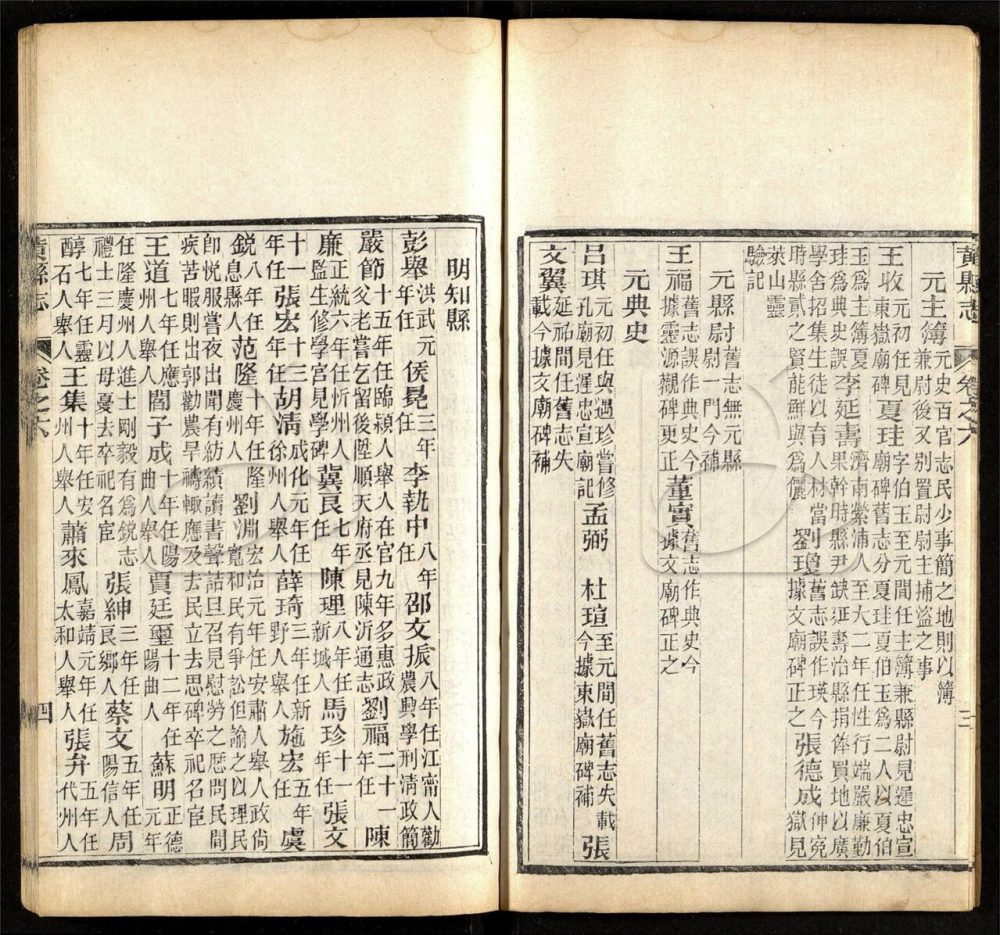 黃縣志 卷之六 三
元主簿 元史百官志民少事簡之地則以簿兼尉後又別置尉尉主捕盜之事
王收 元初任見東嶽廟碑 夏珪 字伯玉至元間任主簿兼縣尉見運忠宣廟碑舊志分夏珪夏伯玉爲二人以夏伯
玉爲主簿夏珪爲典史誤 李延壽 濟南縈浦人至大二年任性行端嚴廉勤果幹時縣尹缺延壽治縣捐俸買地以廣
學舍招集生徒以育人材當時縣貳之賢能鮮與爲儷 劉瓊 舊志誤作瑛今據文廟碑正之 張德成 伸寃獄見
萊山靈驗記
元縣尉 舊志無元縣尉一門今補
王福 舊志誤作典史今據靈源觀碑更正 董實 舊志作典史今據文廟碑正之
元典史
呂琪 元初任與遇珍嘗修孔廟見運忠宣廟記 孟弼 杜瑄 至元間任舊志失載今據東嶽廟碑補 張
文翼 延祐間任舊志失載今據文廟碑補
明知縣
彭舉 洪武元年任 侯昆 三年任 李執中 八年任 邵文振 八年任江甯人勸農興學刑清政簡
嚴節 十五年任臨潁人舉人在官九年多惠政父老嘗乞留後陞順天府丞見陳沂通志 劉福 二十一年任 陳
廉 正統六年任忻州人監生修學宮見學碑 冀良 七年任 陳理 八年任新城人 馬珍 十一年任 張文
十一年任 張宏 十三年任 胡清 成化元年任徐州人舉人 薛琦 三年任新野人舉人 施宏 五年任 虞
銳 八年任息縣人 范隆 十年任隆慶州人 劉淵 宏治元年任安肅人舉人政尚寬和民有爭訟但諭之以理民
卽悅服嘗夜出聞有紡績讀書聲詰旦召見慰勞之歷問民間疾苦暇則出郭勸農旱禱輒應及去民立去思碑卒祀名宦
王道 七年任應州人舉人 閻子成 十年任陽曲人舉人 賈廷璽 十二年任陽曲人 蘇明 正德元年
任隆慶州人進士剛毅有爲銳志禮士三月以母憂去卒祀名宦 張紳 三年任良鄉人 蔡文 五年任陽信人 周
醇 七年任靈石人舉人 王集 十年任安州人舉人 蕭來鳳 嘉靖元年任太和人舉人 張弁 五年任代州人
黃縣志 卷之六 四